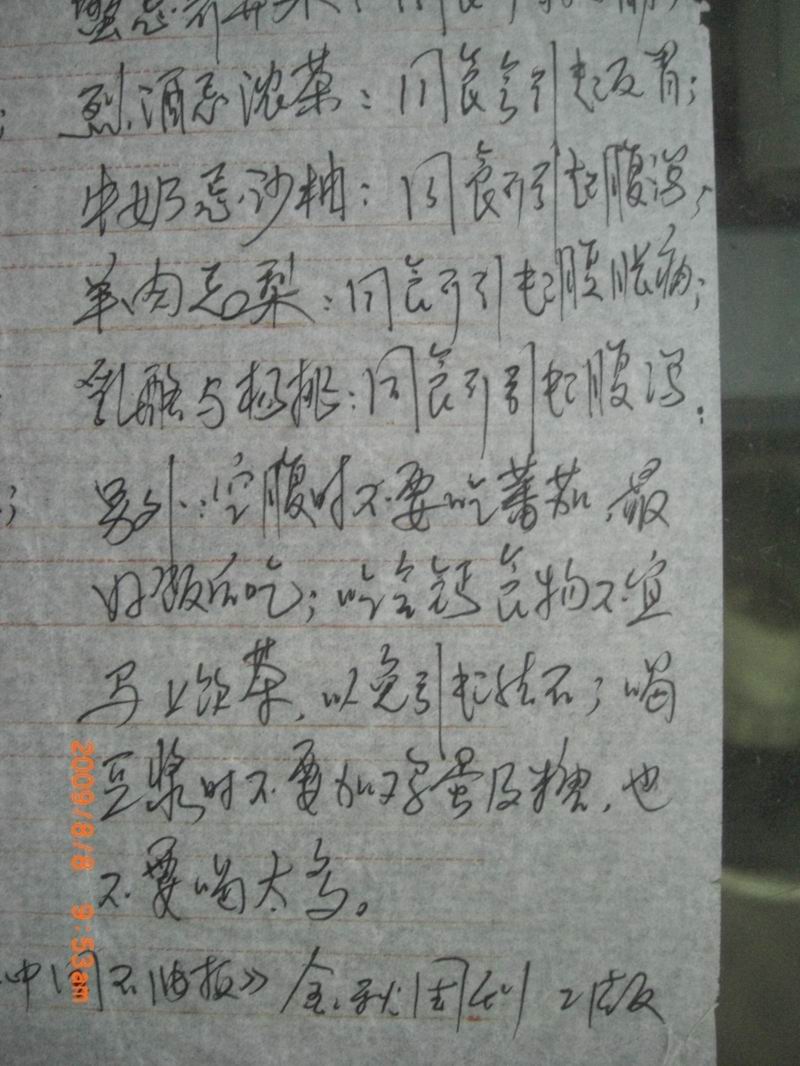 烈酒忌浓茶：同食会引起反胃；
牛奶忌沙柚：同食可引起腹泻；
羊肉忌梨：同食可引起腹胀病；
乳酪与杨桃：同食可引起腹泻。
另外：空腹时不要吃蕃茄，最
好饭后吃；吃含钙食物不宜
马上饮茶，以免引起结石；喝
豆浆时不要加鸡蛋及糖，也
不要喝太多。
中国石油报》金秋周刊
2009/8/8 9:53am